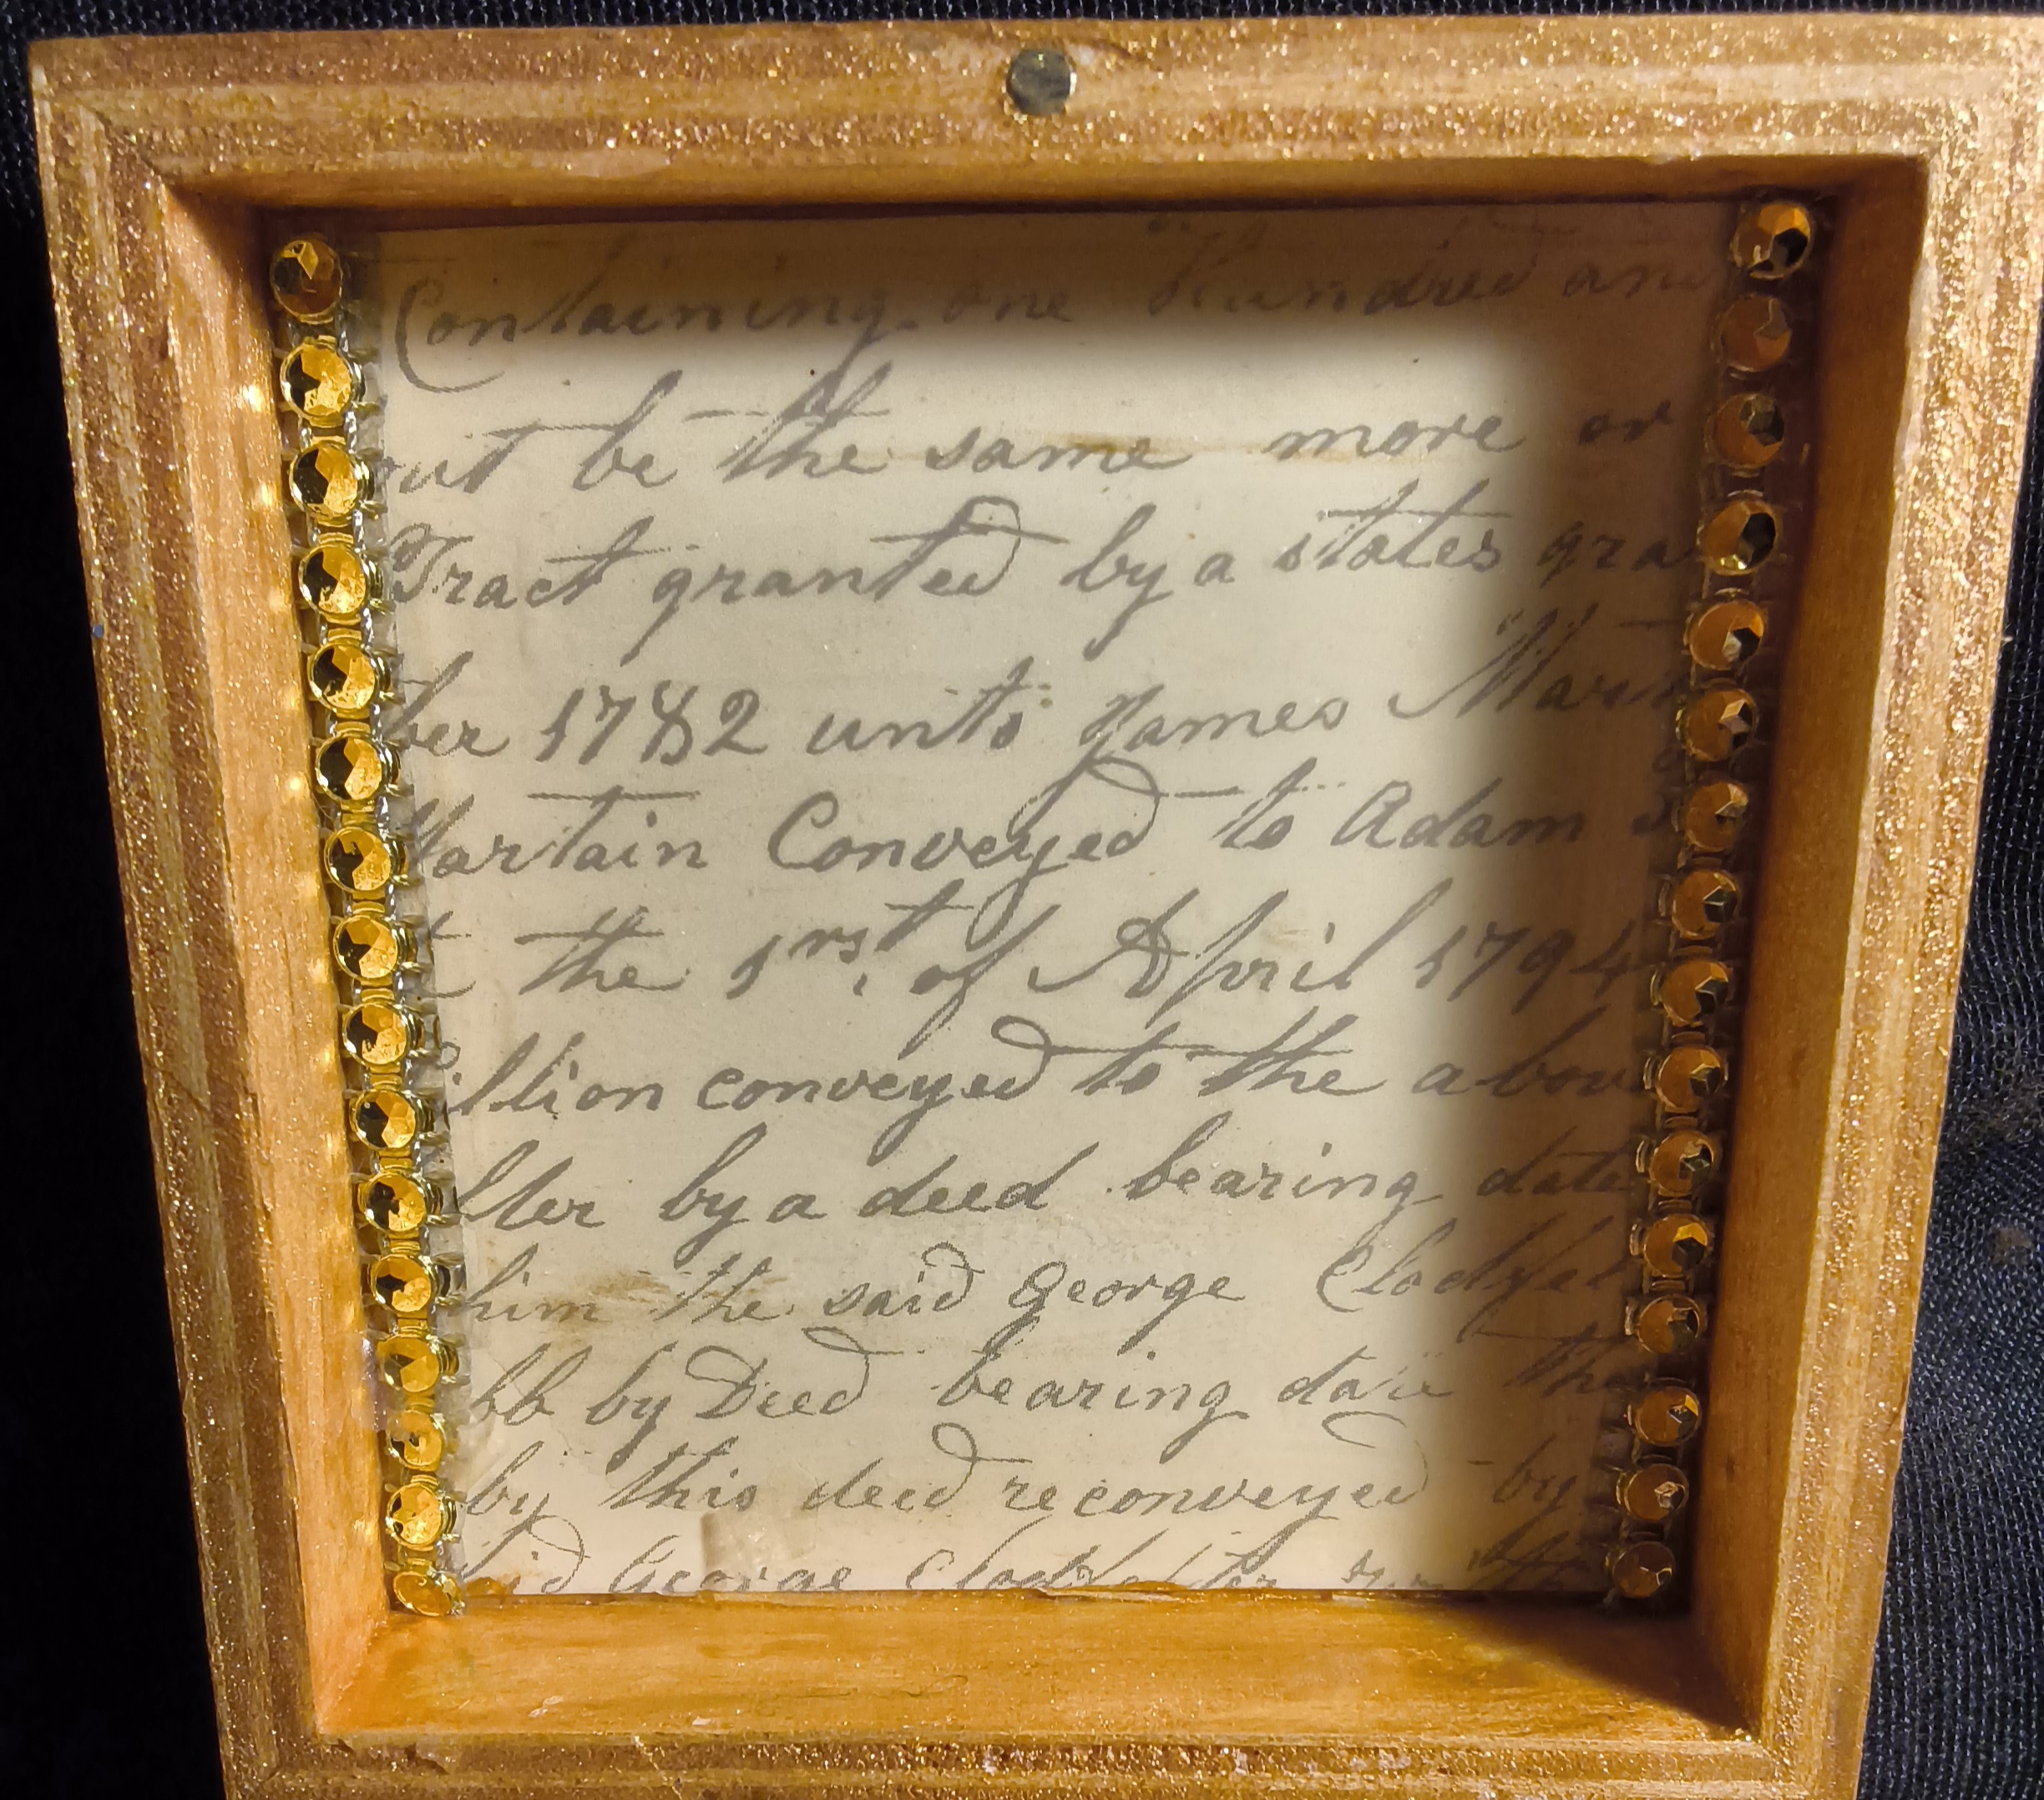 Containing one Hundred and
out be the same more or
Tract granted by a states gra
ber 1782 unto James Mart
Martain Conveyed to Adam
t the 1rst of April 1794
illion conveyed to the above
lter by a deed bearing date
him the said George Clodfel
bb by Deed bearing date the
by this deed reconveyed by
aid George Clodfelter